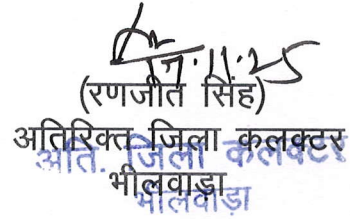 17.11.25
(रणजीत सिंह)
अतिरिक्त जिला कलक्टर
अति. जिला कलेक्टर
भीलवाड़ा
भीलवाड़ा